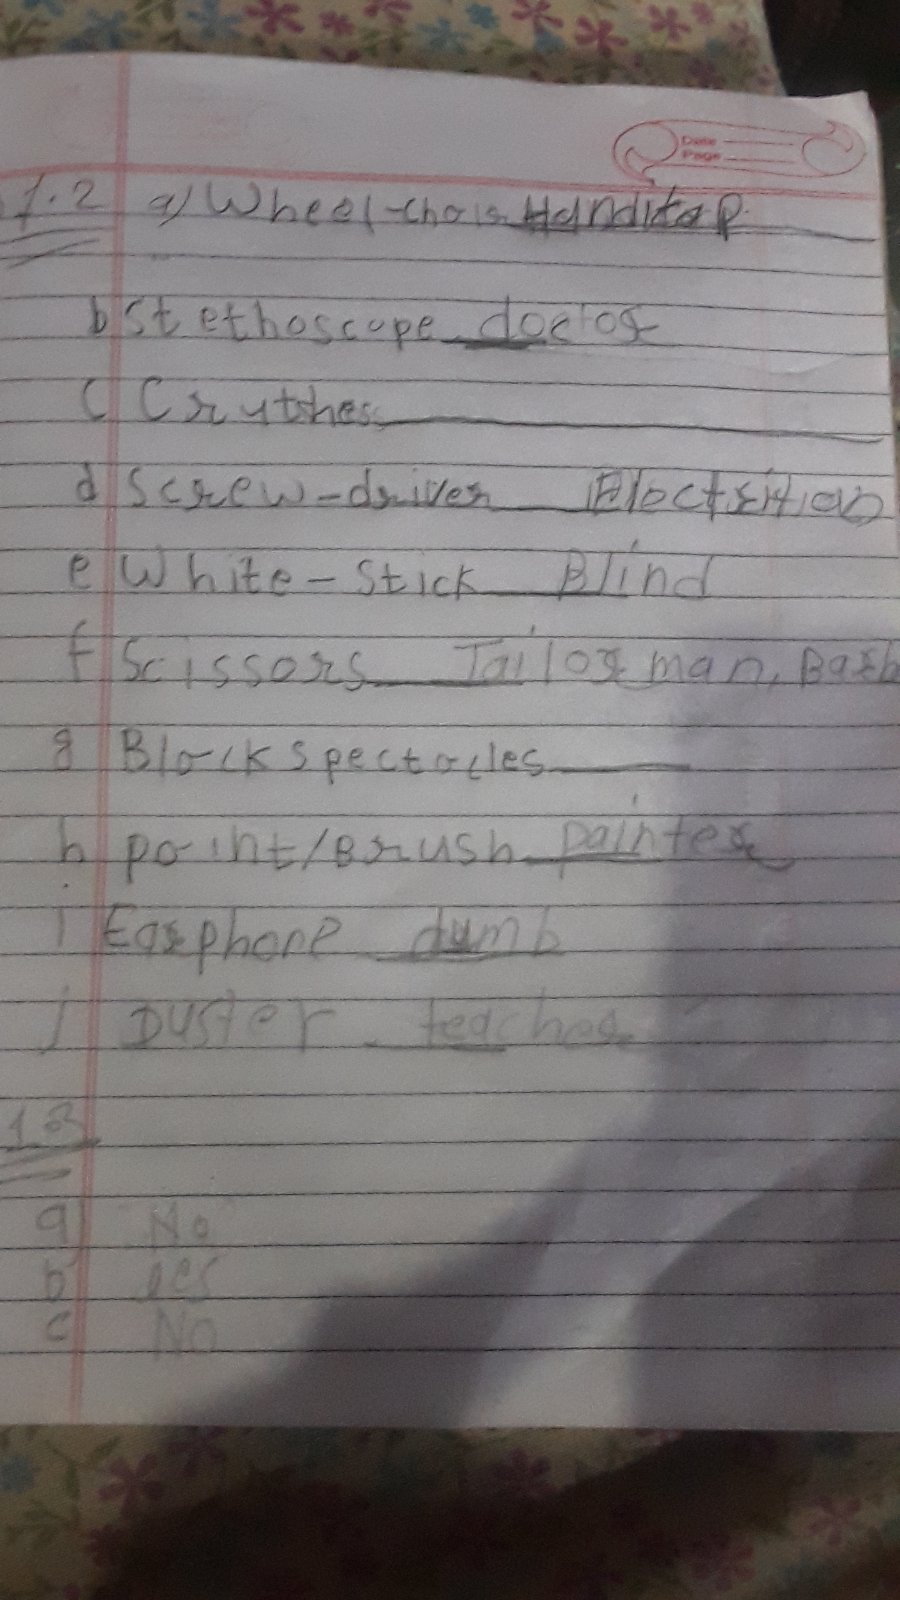 Date
Page
1.2 a) Wheel-chair Handicap
b Stethoscope doctor
C Crutches
d Screw-driver Electrition
e White-Stick Blind
f Scissors Tailor man, Barb
g Black spectacles
h paint/Brush painter
i Earphone dumb
j Duster teacher
1.3
a) No
b yes
c No